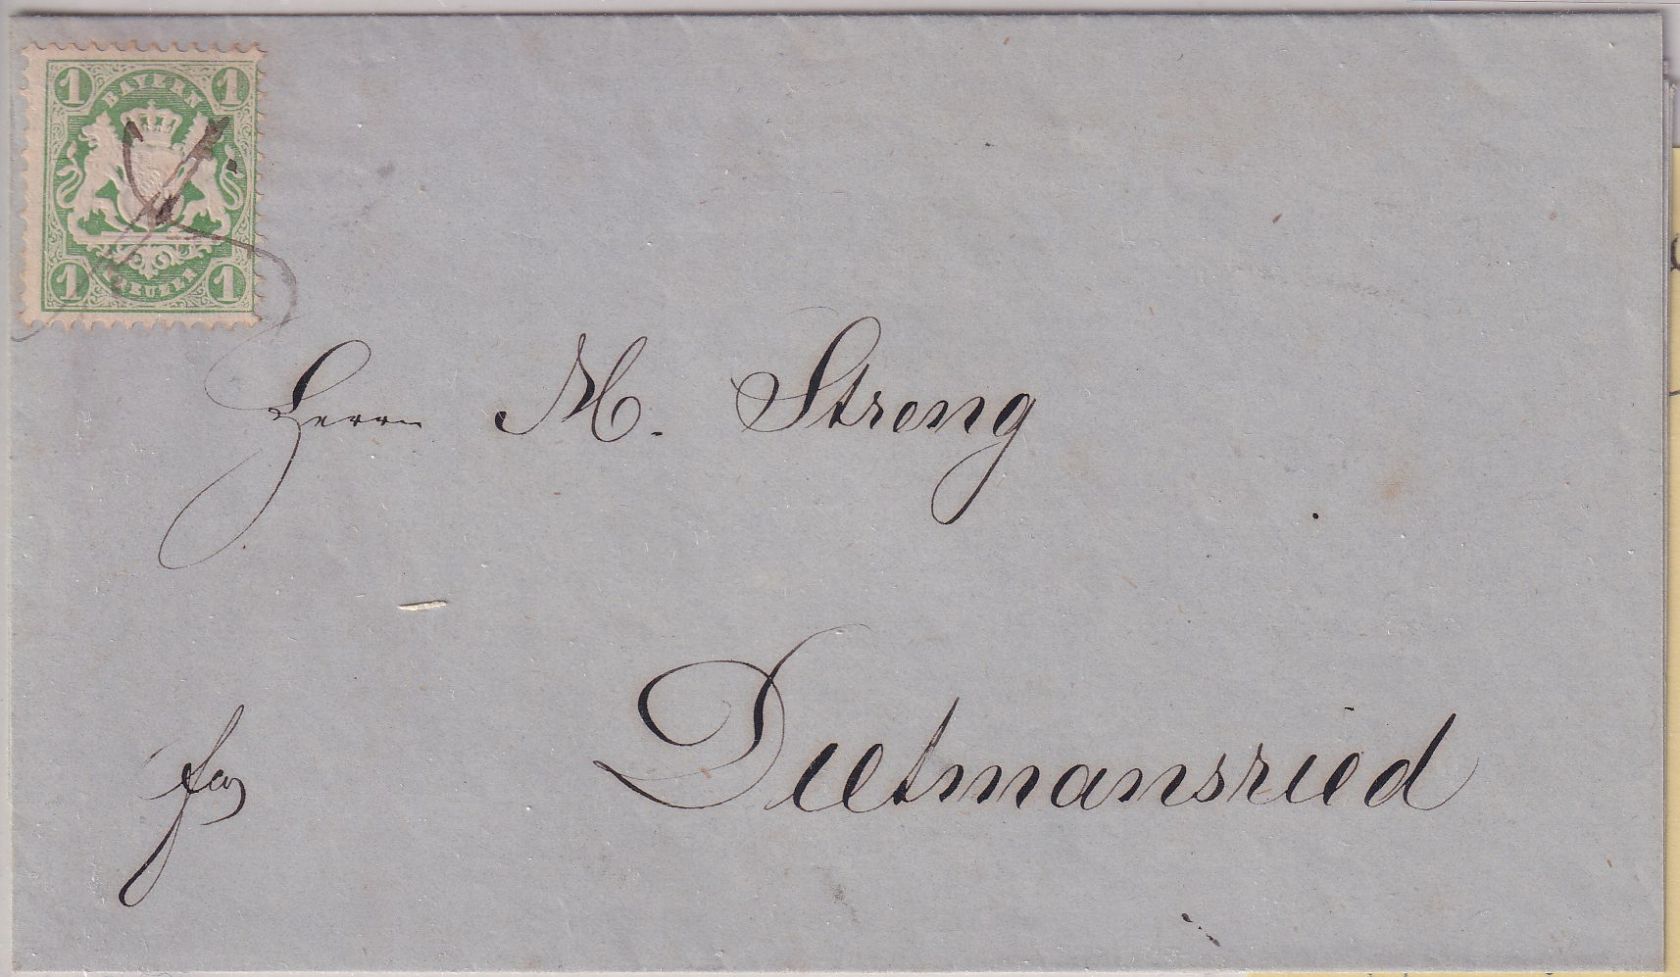 1 BAYERN 1
1 KREUZER 1
Herrn M. Streng
Dietmansried